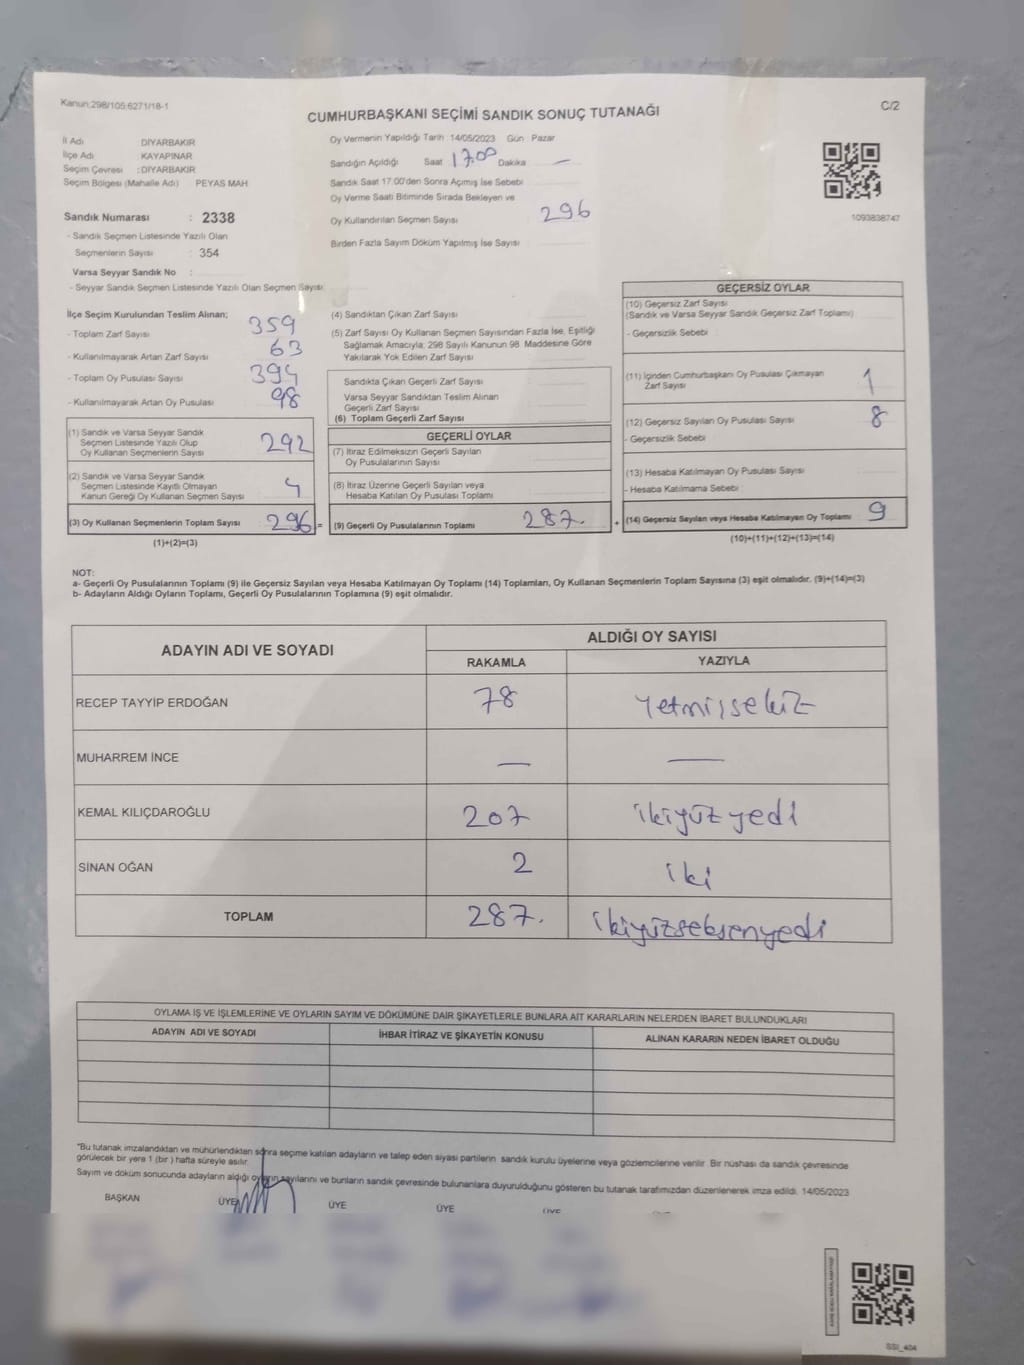 Kanun:298/105,6271/18-1
C/2
CUMHURBAŞKANI SEÇİMİ SANDIK SONUÇ TUTANAĞI
İl Adı DİYARBAKIR
İlçe Adı KAYAPINAR
Seçim Çevresi : DİYARBAKIR
Seçim Bölgesi (Mahalle Adı) PEYAS MAH.
Sandık Numarası : 2338
- Sandık Seçmen Listesinde Yazılı Olan
Seçmenlerin Sayısı : 354
Varsa Seyyar Sandık No :
- Seyyar Sandık Seçmen Listesinde Yazılı Olan Seçmen Sayısı:
Oy Vermenin Yapıldığı Tarih : 14/05/2023 Gün : Pazar
Sandığın Açıldığı Saat 17.00 Dakika —
Sandık Saat 17:00'den Sonra Açımış İse Sebebi
Oy Verme Saati Bitiminde Sırada Bekleyen ve
Oy Kullandırılan Seçmen Sayısı 296
Birden Fazla Sayım Döküm Yapılmış İse Sayısı
1093838747
İlçe Seçim Kurulundan Teslim Alınan;
- Toplam Zarf Sayısı 359
- Kullanılmayarak Artan Zarf Sayısı 63
- Toplam Oy Pusulası Sayısı 394
- Kullanılmayarak Artan Oy Pusulası 98
(1) Sandık ve Varsa Seyyar Sandık
Seçmen Listesinde Yazılı Olup
Oy Kullanan Seçmenlerin Sayısı 292
(2) Sandık ve Varsa Seyyar Sandık
Seçmen Listesinde Kayıtlı Olmayan
Kanun Gereği Oy Kullanan Seçmen Sayısı 4
(3) Oy Kullanan Seçmenlerin Toplam Sayısı 296 =
(1)+(2)=(3)
(4) Sandıktan Çıkan Zarf Sayısı
(5) Zarf Sayısı Oy Kullanan Seçmen Sayısından Fazla İse, Eşitliği
Sağlamak Amacıyla; 298 Sayılı Kanunun 98. Maddesine Göre
Yakılarak Yok Edilen Zarf Sayısı
Sandıkta Çıkan Geçerli Zarf Sayısı
Varsa Seyyar Sandıktan Teslim Alınan
Geçerli Zarf Sayısı
(6) Toplam Geçerli Zarf Sayısı
GEÇERLİ OYLAR
(7) İtiraz Edilmeksizin Geçerli Sayılan
Oy Pusulalarının Sayısı
(8) İtiraz Üzerine Geçerli Sayılan veya
Hesaba Katılan Oy Pusulası Toplamı
(9) Geçerli Oy Pusulalarının Toplamı 287. +
GEÇERSİZ OYLAR
(10) Geçersiz Zarf Sayısı
(Sandık ve Varsa Seyyar Sandık Geçersiz Zarf Toplamı)
- Geçersizlik Sebebi
(11) İçinden Cumhurbaşkanı Oy Pusulası Çıkmayan
Zarf Sayısı 1
(12) Geçersiz Sayılan Oy Pusulası Sayısı 8
- Geçersizlik Sebebi
(13) Hesaba Katılmayan Oy Pusulası Sayısı
- Hesaba Katılmama Sebebi :
(14) Geçersiz Sayılan veya Hesaba Katılmayan Oy Toplamı 9
(10)+(11)+(12)+(13)=(14)
NOT:
a- Geçerli Oy Pusulalarının Toplamı (9) ile Geçersiz Sayılan veya Hesaba Katılmayan Oy Toplamı (14) Toplamları, Oy Kullanan Seçmenlerin Toplam Sayısına (3) eşit olmalıdır. (9)+(14)=(3)
b- Adayların Aldığı Oyların Toplamı, Geçerli Oy Pusulalarının Toplamına (9) eşit olmalıdır.
ADAYIN ADI VE SOYADI
ALDIĞI OY SAYISI
RAKAMLA YAZIYLA
RECEP TAYYİP ERDOĞAN 78 Yetmişsekiz
MUHARREM İNCE — —
KEMAL KILIÇDAROĞLU 207 ikiyüzyedi
SİNAN OĞAN 2 iki
TOPLAM 287. ikiyüzseksenyedi
OYLAMA İŞ VE İŞLEMLERİNE VE OYLARIN SAYIM VE DÖKÜMÜNE DAİR ŞİKAYETLERLE BUNLARA AİT KARARLARIN NELERDEN İBARET BULUNDUKLARI
ADAYIN ADI VE SOYADI İHBAR İTİRAZ VE ŞİKAYETİN KONUSU ALINAN KARARIN NEDEN İBARET OLDUĞU
*Bu tutanak imzalandıktan ve mühürlendikten sonra seçime katılan adayların ve talep eden siyasi partilerin sandık kurulu üyelerine veya gözlemcilerine verilir. Bir nüshası da sandık çevresinde
görülecek bir yere 1 (bir) hafta süreyle asılır.
Sayım ve döküm sonucunda adayların aldığı oyların sayılarını ve bunların sandık çevresinde bulunanlara duyurulduğunu gösteren bu tutanak tarafımızdan düzenlenerek imza edildi. 14/05/2023
BAŞKAN ÜYE ÜYE ÜYE ÜYE
SSI_404